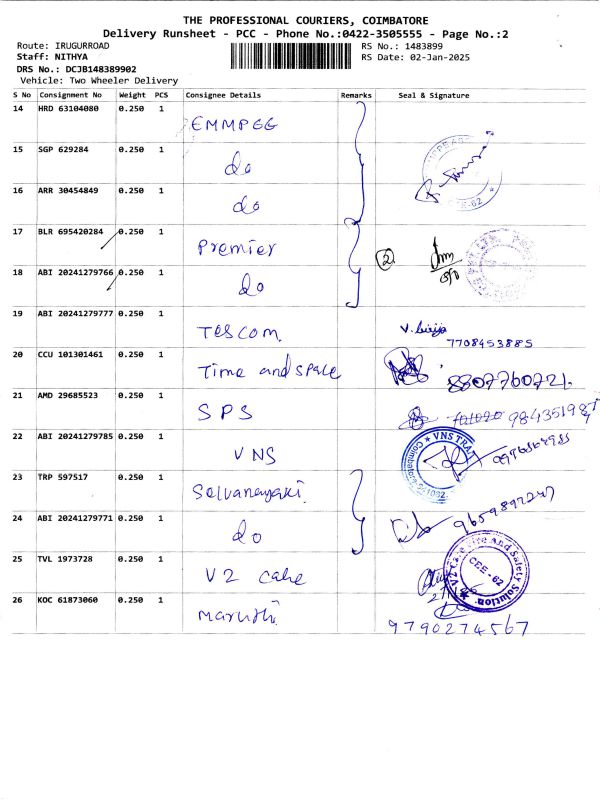 THE PROFESSIONAL COURIERS, COIMBATORE
Delivery Runsheet - PCC - Phone No.:0422-3505555 - Page No.:2
Route: IRUGURROAD
RS No.: 1483899
Staff: NITHYA
RS Date: 02-Jan-2025
DRS No.: DCJB148389902
Vehicle: Two Wheeler Delivery
S No Consignment No Weight PCS Consignee Details Remarks Seal & Signature
14 HRD 63104080 0.250 1
EMMPEE
15 SGP 629284 0.250 1
do
16 ARR 30454849 0.250 1
do
17 BLR 695420284 0.250 1
Premier
2
18 ABI 20241279766 0.250 1
do
19 ABI 20241279777 0.250 1
TESCOM
7708453885
20 CCU 101301461 0.250 1
Time and space
8807760721
21 AMD 29685523 0.250 1
SPS
22 ABI 20241279785 0.250 1
VNS
VNS TRA
Coimbatore-641062
23 TRP 597517 0.250 1
Selvanayaki
24 ABI 20241279771 0.250 1
do
9659892247
25 TVL 1973728 0.250 1
V2 care
V2 Care Fire and Safety Solution
CBE - 62
26 KOC 61873060 0.250 1
Maruthi
9790274567